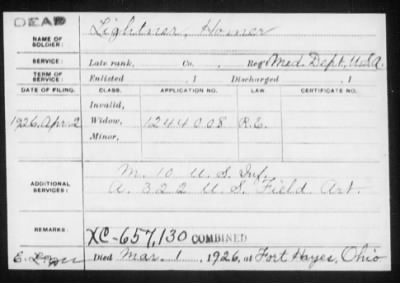 DEAD
NAME OF SOLDIER: Lightner, Homer
SERVICE: Late rank, Co. , Reg't Med. Dept. U.S.A.
TERM OF SERVICE: Enlisted , 1 Discharged , 1
DATE OF FILING. CLASS. APPLICATION NO. LAW. CERTIFICATE NO.
Invalid,
1926, Apr. 2 Widow, 1244008 R.C.
Minor,
ADDITIONAL SERVICES: M. 10 U.S. Inf.
A. 322 U.S. Field Art.
REMARKS: XC-657,130 COMBINED
Died Mar. 1, 1926, at Fort Hayes, Ohio